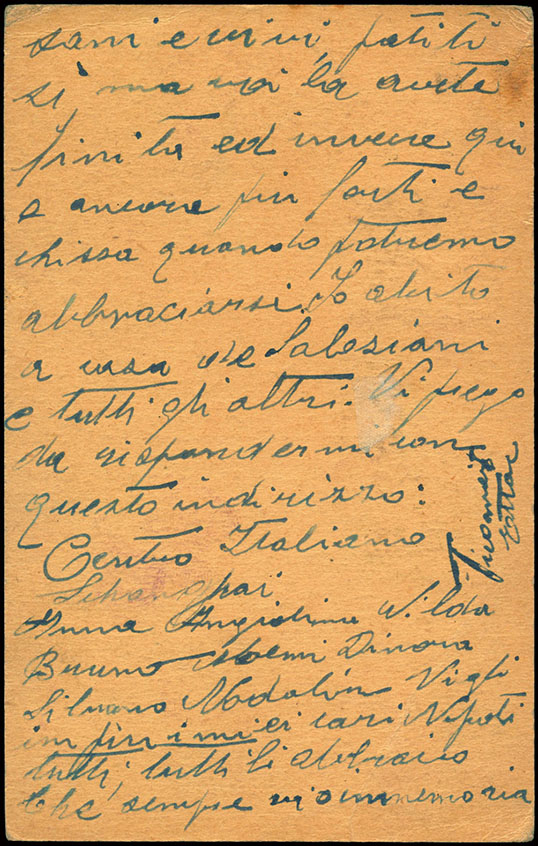 sani e vivi, patiti
si, ma voi la avete
finita ed invece qui
a ancora piu forti e
chissa quando potremo
abbraciarsi. Io abito
a casa de Salesiani
e tutti gli altri. Vi prego
da rispondermi con
questo indirizzo:
Centro Italiano
Schanghai
Anna Angiolina Wilda
Bruno Noemi Dinora
Silvano Nadalin Vigli
infin i miei cari Nipoti
tutti, tutti li abracio
che sempre vi o in memoria